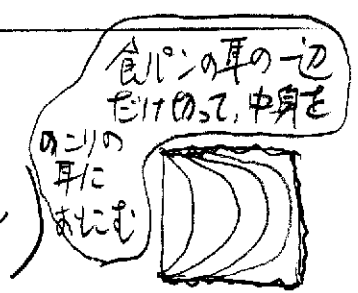 食パンの耳の一辺
だけ切って、中身を
のこりの
耳に
おしこむ